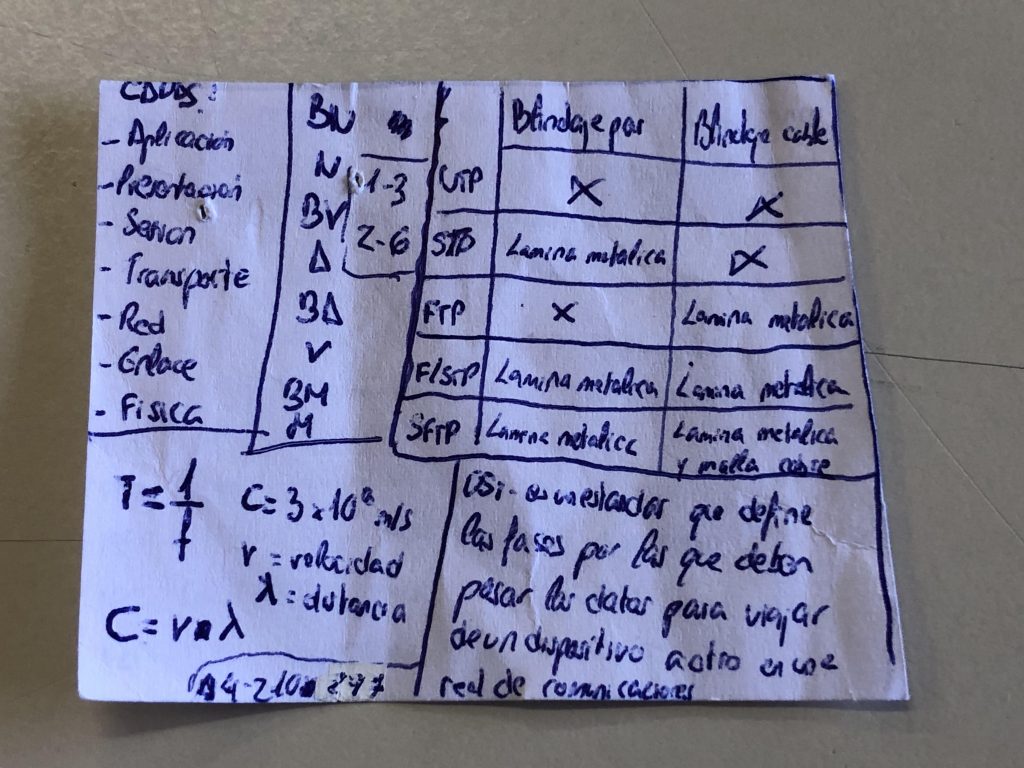 CAPAS:
- Aplicación
- Presentación
- Sesion
- Transporte
- Red
- Enlace
- Fisica
BN
N
BV
Δ
BΔ
V
BM
M
1-3
2-6
Blindaje par Blindaje cable
UTP X X
STP Lamina metalica X
FTP X Lamina metalica
F/STP Lamina metalica Lamina metalica
SFTP Lamina metalica Lamina metalica
y malla cobre
T = 1/f
C = 3 x 10⁸ m/s
v = velocidad
λ = distancia
C = v · λ
A4-210 297
OSI- es un estandar que define
las fases por las que deben
pasar los datos para viajar
de un dispositivo a otro en una
red de comunicaciones